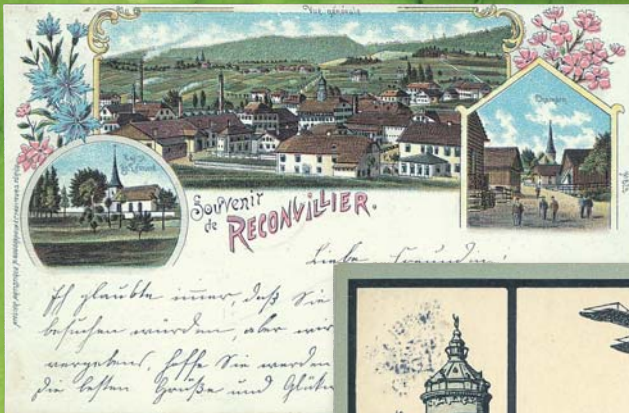 Vue générale
Chaindon
Souvenir
de RECONVILLIER.
Liebe Freundin!
Ich glaubte immer, daß Sie
besuchen würden, aber wir
vergebens, hoffe Sie werden
die besten Grüße und